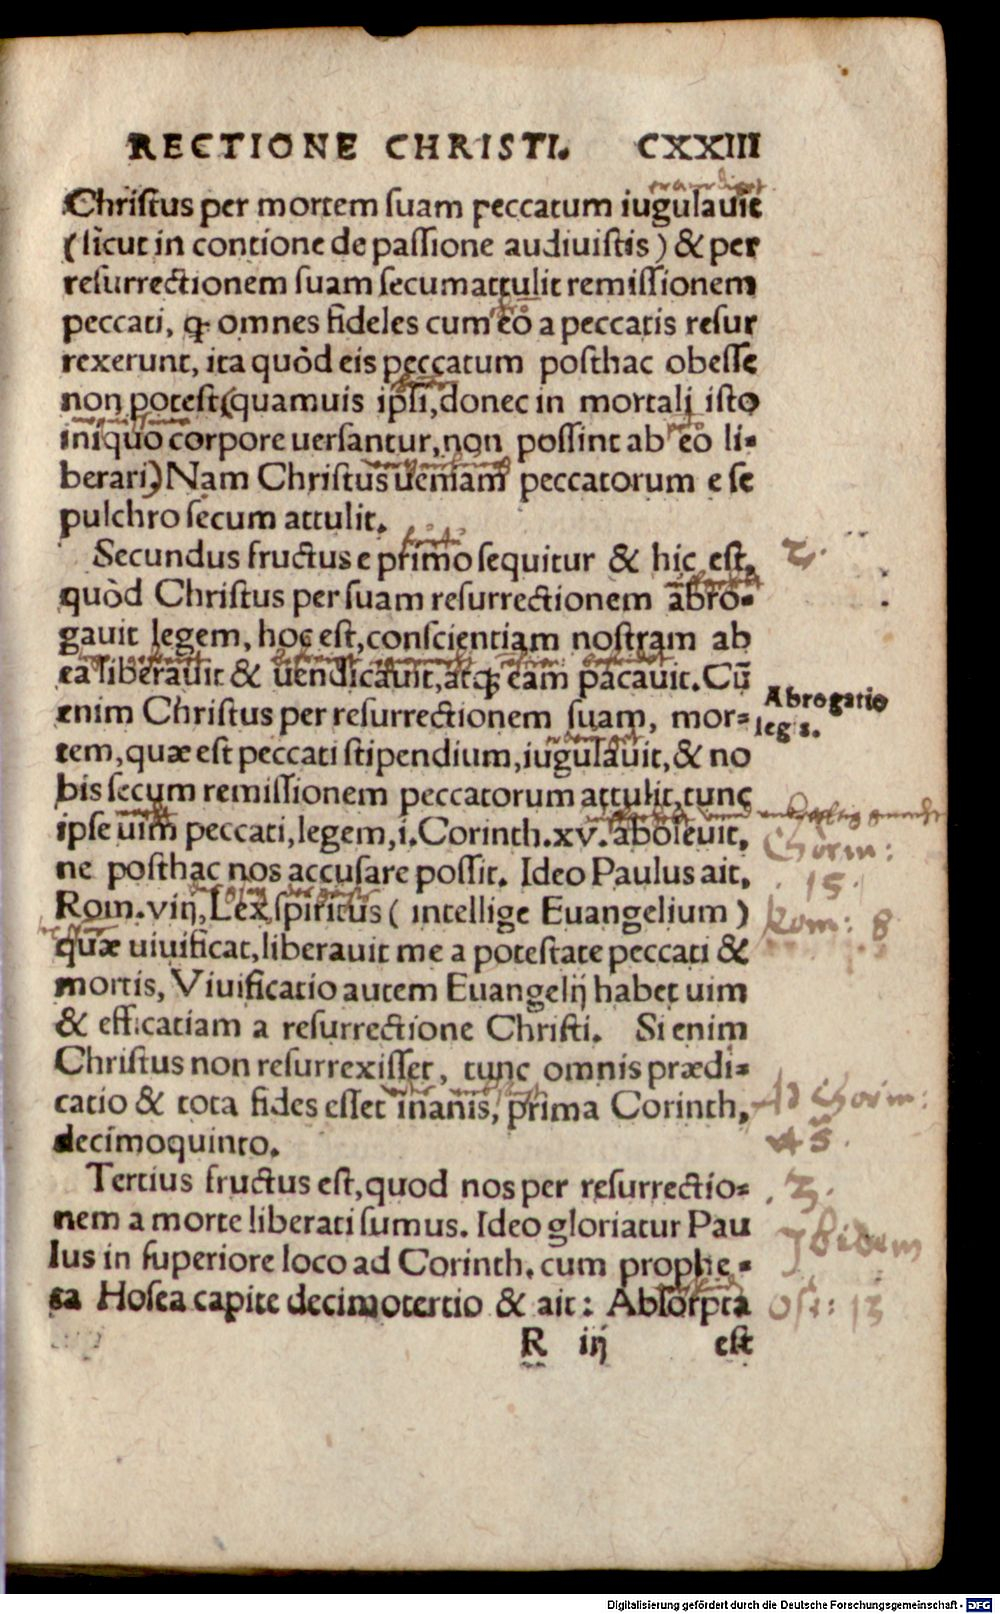 RECTIONE CHRISTI. CXXIII
Christus per mortem suam peccatum iugulauit
(sicut in contione de passione audiuistis) & per
resurrectionem suam secum attulit remissionem
peccati, ꝙ omnes fideles cum eo a peccatis resur
rexerunt, ita quòd eis peccatum posthac obesse
non potest (quamuis ipsi, donec in mortali isto
iniquo corpore uersantur, non possint ab eo li-
berari) Nam Christus ueniam peccatorum e se
pulchro secum attulit.
Secundus fructus e primo sequitur & hic est,
2.
quòd Christus per suam resurrectionem abro-
gauit legem, hoc est, conscientiam nostram ab
ea liberauit & uendicauit, atqꝫ eam pacauit. Cū
Abrogatio
enim Christus per resurrectionem suam, mor-
legis.
tem, quæ est peccati stipendium, iugulauit, & no
bis secum remissionem peccatorum attulit, tunc
ipse uim peccati, legem, i. Corinth. xv. aboleuit,
Corin:
ne posthac nos accusare possit. Ideo Paulus ait,
15.
Rom. viij, Lex spiritus ( intellige Euangelium )
Rom: 8
quæ uiuificat, liberauit me a potestate peccati &
mortis, Viuificatio autem Euangelij habet uim
& efficatiam a resurrectione Christi. Si enim
Christus non resurrexisset, tunc omnis prædi-
catio & tota fides esset inanis, prima Corinth,
Ad Corin:
decimoquinto.
15.
Tertius fructus est, quod nos per resurrectio-
3.
nem a morte liberati sumus. Ideo gloriatur Pau
Ibidem
lus in superiore loco ad Corinth. cum prophe-
ta Hosea capite decimotertio & ait: Absorpta
Ose: 13
R iij est
Digitalisierung gefördert durch die Deutsche Forschungsgemeinschaft - DFG